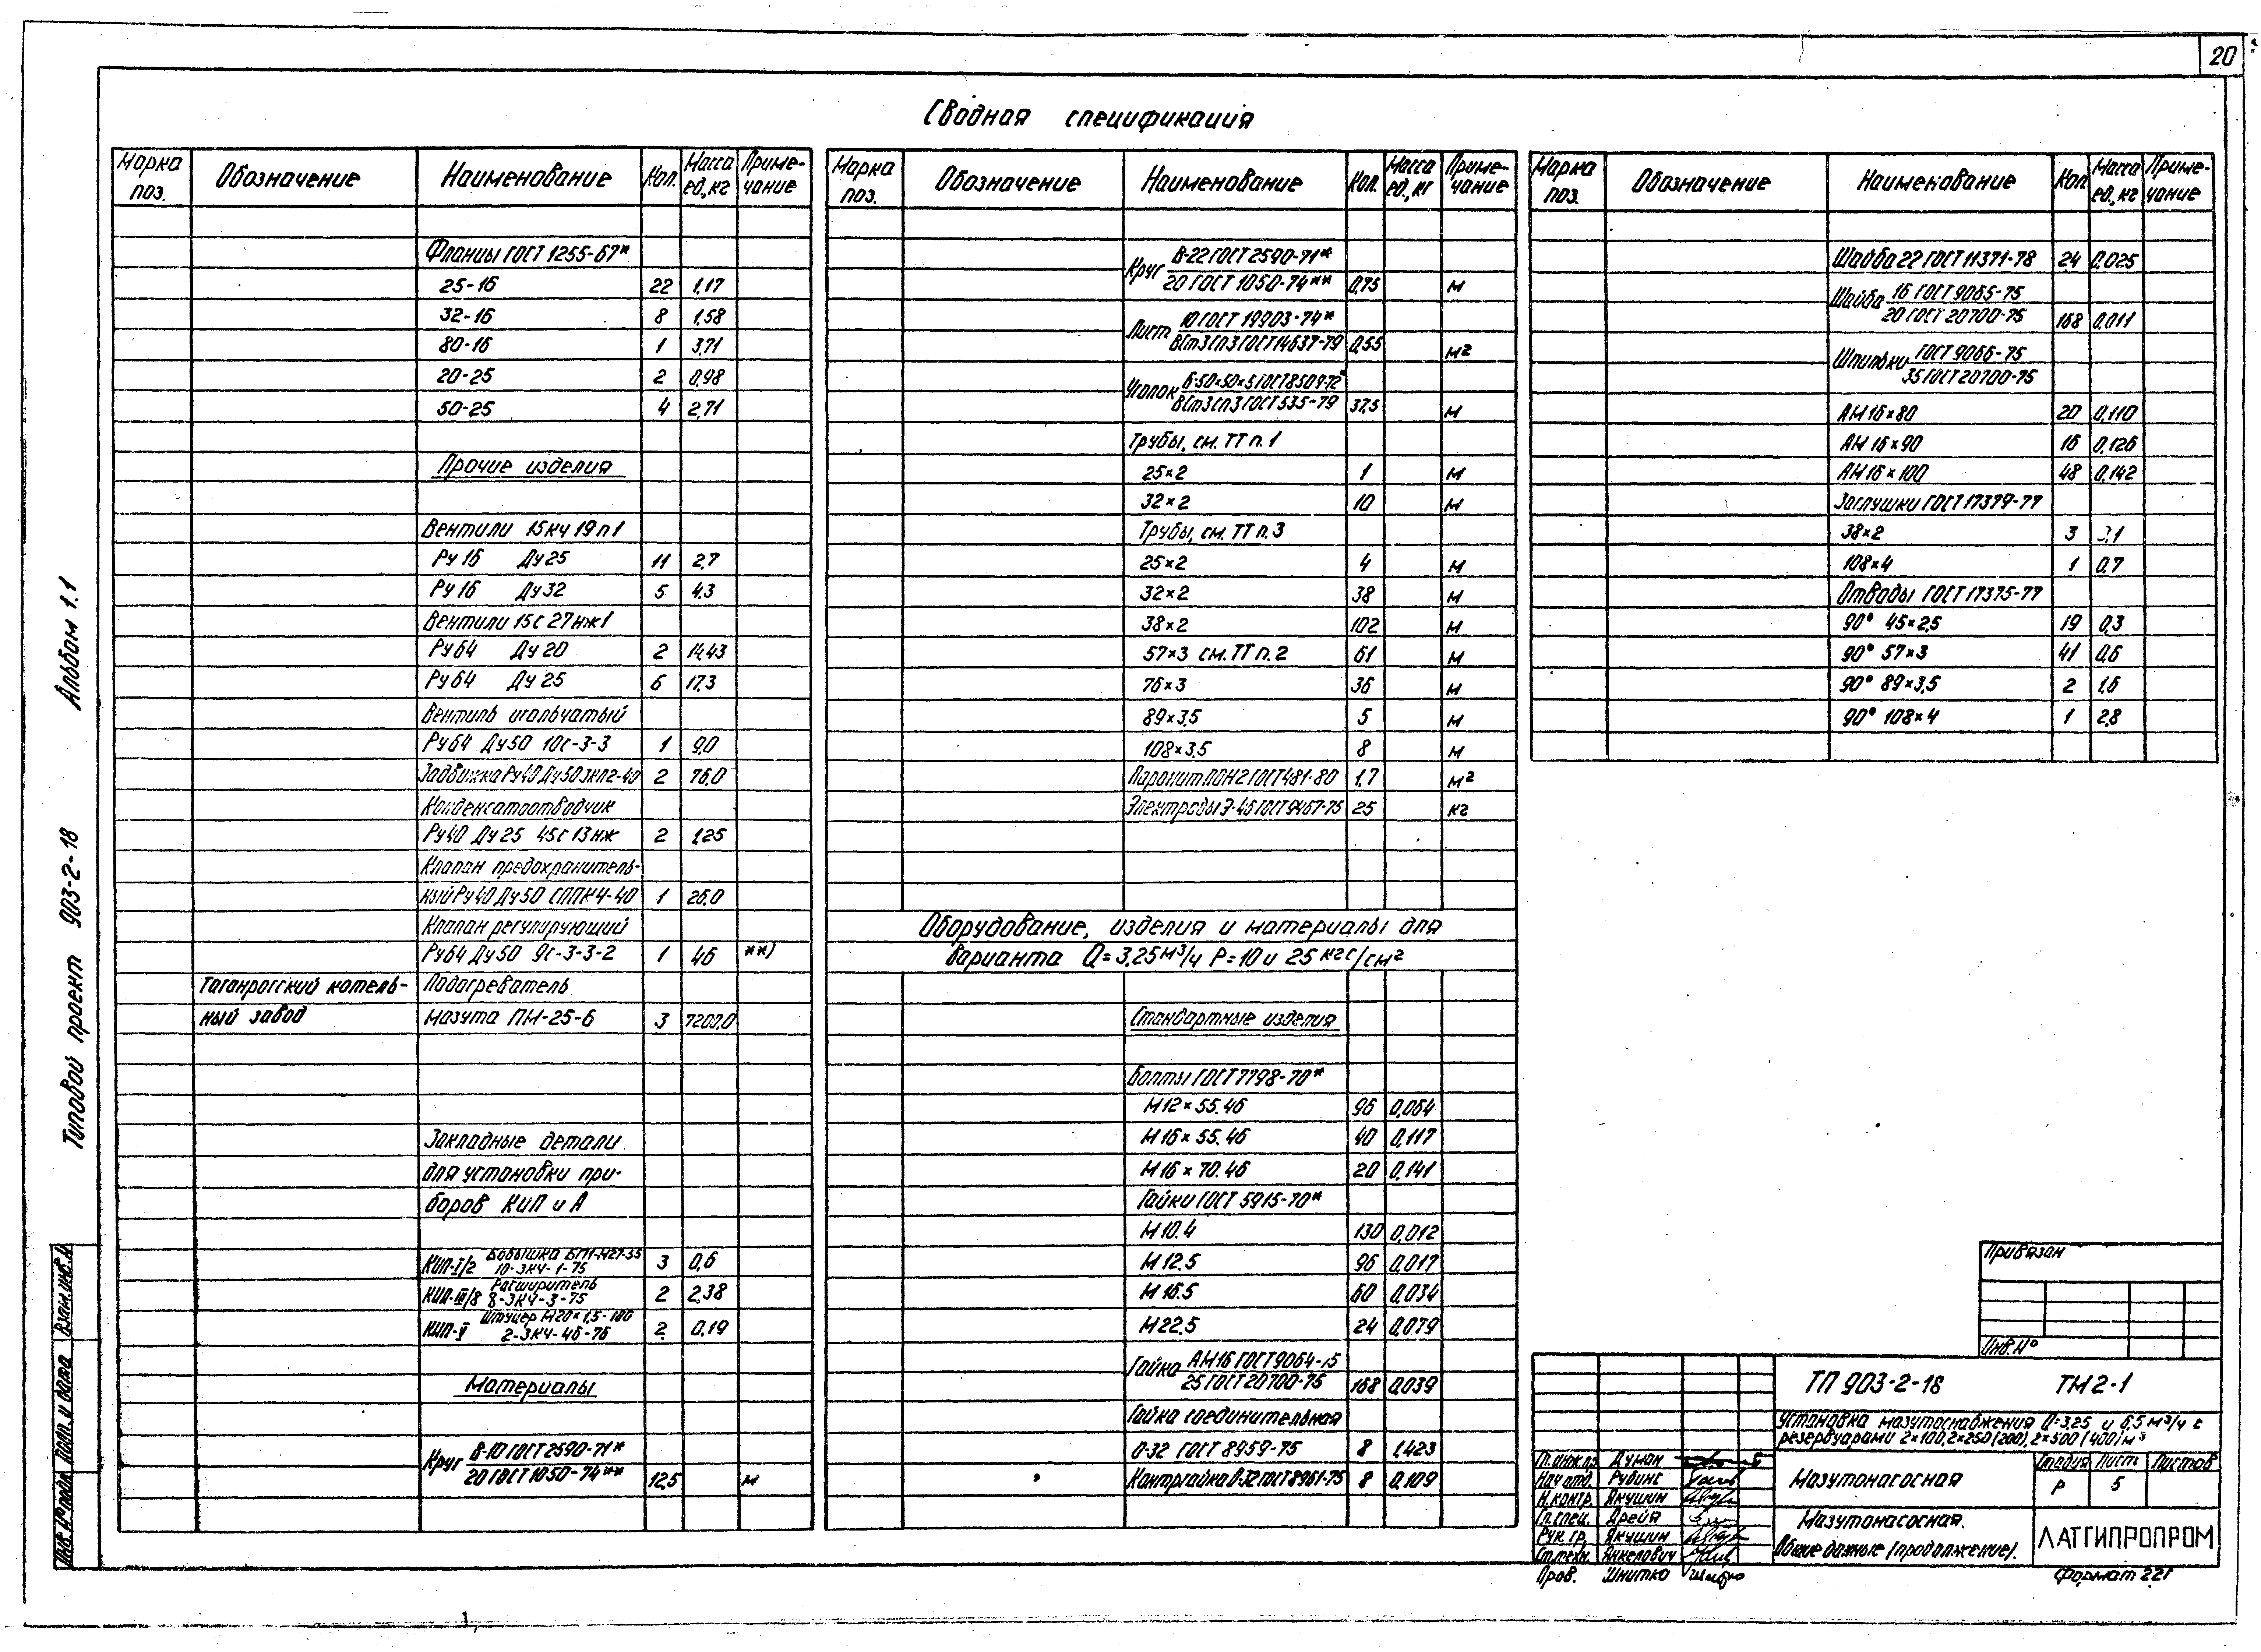 20
Сводная спецификация
Марка поз. Обозначение Наименование Кол. Масса ед., кг Приме-чание
Фланцы ГОСТ 1255-67*
25-16 22 1,17
32-16 8 1,58
80-16 1 3,71
20-25 2 0,98
50-25 4 2,71
Прочие изделия
Вентили 15кч 19п1
Ру 16 Ду 25 11 2,7
Ру 16 Ду 32 5 4,3
Вентили 15с 27нж1
Ру 64 Ду 20 2 14,43
Ру 64 Ду 25 6 17,3
Вентиль игольчатый
Ру 64 Ду 50 10с-3-3 1 9,0
Задвижка Ру 40 Ду 50 ЗКЛ2-40 2 76,0
Конденсатоотводчик
Ру 40 Ду 25 45с 13нж 2 1,25
Клапан предохранитель-
ный Ру 40 Ду 50 СППК4-40 1 26,0
Клапан регулирующий
Ру 64 Ду 50 9с-3-3-2 1 46 **)
Таганрогский котель- Подогреватель
ный завод мазута ПМ-25-6 3 7200,0
Закладные детали
для установки при-
боров КИП и А
КИП-I/2 Бобышка БП1-М27-55 10-ЗКЧ-1-75 3 0,6
КИП-III/8 Расширитель 8-ЗКЧ-3-75 2 2,38
КИП-V Штуцер М20×1,5-100 2-ЗКЧ-46-76 2 0,19
Материалы
Круг В-10 ГОСТ 2590-71*
20 ГОСТ 1050-74** 12,5 м
Марка поз. Обозначение Наименование Кол. Масса ед., кг Приме-чание
Круг В-22 ГОСТ 2590-71*
20 ГОСТ 1050-74** 0,75 м
Лист 10 ГОСТ 19903-74*
ВСт3сп3 ГОСТ 14637-79 0,55 м2
Уголок Б-50×50×5 ГОСТ 8509-72*
ВСт3сп3 ГОСТ 535-79 37,5 м
Трубы, см. ТТ п. 1
25×2 1 м
32×2 10 м
Трубы, см. ТТ п. 3
25×2 4 м
32×2 38 м
38×2 102 м
57×3 см. ТТ п. 2 61 м
76×3 36 м
89×3,5 5 м
108×3,5 8 м
Паронит ПОН2 ГОСТ 481-80 1,7 м2
Электроды Э-46 ГОСТ 9467-75 25 кг
Оборудование, изделия и материалы для
варианта Q=3,25 м3/ч Р=10 и 25 кгс/см2
Стандартные изделия
Болты ГОСТ 7798-70*
М12×55.46 96 0,064
М16×55.46 40 0,117
М16×70.46 20 0,141
Гайки ГОСТ 5915-70*
М10.4 130 0,012
М12.5 96 0,017
М16.5 60 0,034
М22.5 24 0,079
Гайка АМ16 ГОСТ 9064-75
25 ГОСТ 20700-75 168 0,039
Гайка соединительная
О-32 ГОСТ 8959-75 8 1,423
Контргайка О-32 ГОСТ 8961-75 8 0,109
Марка поз. Обозначение Наименование Кол. Масса ед., кг Приме-чание
Шайба 22 ГОСТ 11371-78 24 0,025
Шайба 16 ГОСТ 9065-75
20 ГОСТ 20700-75 168 0,011
Шпильки ГОСТ 9066-75
35 ГОСТ 20700-75
АМ 16×80 20 0,110
АМ 16×90 16 0,126
АМ 16×100 48 0,142
Заглушки ГОСТ 17379-77
38×2 3 0,1
108×4 1 0,7
Отводы ГОСТ 17375-77
90° 45×2,5 19 0,3
90° 57×3 41 0,6
90° 89×3,5 2 1,6
90° 108×4 1 2,8
Типовой проект 903-2-18 Альбом 1.1
Инв. № подл. Подп. и дата Взам. инв. №
Привязан
Инв. №
ТП 903-2-18 ТМ 2-1
Установка мазутоснабжения Q=3,25 и 6,5 м3/ч с
резервуарами 2×100, 2×250 (200), 2×500 (400) м3
Гл. инж. пр. Думан
Нач. отд. Рубинс
Н. контр. Якушин
Гл. спец. Дрейя
Рук. гр. Якушин
Ст. техн. Янкелович
Пров. Шнитко
Мазутонасосная
Стадия Лист Листов
Р 5
Мазутонасосная.
Общие данные (продолжение).
ЛАТГИПРОПРОМ
Формат 22Г